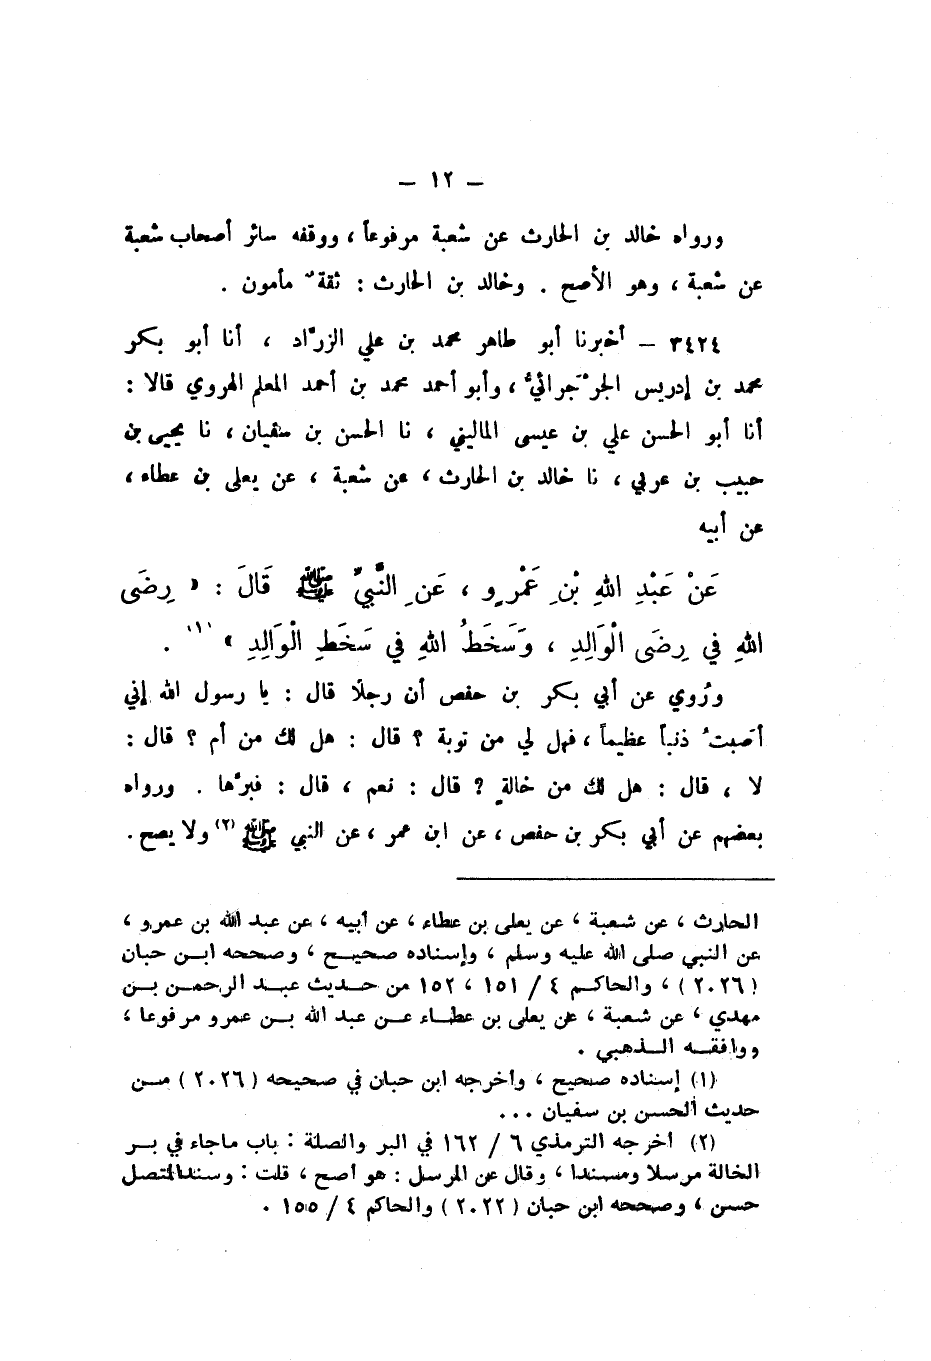 – ١٢ –
ورواه خالد بن الحارث عن شعبة مرفوعاً ، ووقفه سائر أصحاب شعبة
عن شعبة ، وهو الأصح . وخالد بن الحارث : ثقةٌ مأمون .
٣٤٢٤ – أخبرنا أبو طاهر محمد بن علي الزرَّاد ، أنا أبو بكر
محمد بن إدريس الجرْجَرائيُّ ، وأبو أحمد محمد بن أحمد المعلم الهروي قالا :
أنا أبو الحسن علي بن عيسى الماليني ، نا الحسن بن سفيان ، نا يحيى بن
حبيب بن عربي ، نا خالد بن الحارث ، عن شعبة ، عن يعلى بن عطاء ،
عن أبيه
عَنْ عَبْدِ اللهِ بْنِ عَمْرٍو ، عَنِ النَّبيِّ ﷺ قَالَ : « رِضَى
اللهِ في رِضَى الْوَالِدِ ، وَسَخَطُ اللهِ في سَخَطِ الْوَالِدِ » (١) .
ورُوي عن أبي بكر بن حفص أن رجلًا قال : يا رسول الله إني
أصَبتُ ذنباً عظيماً ، فهل لي من توبة ؟ قال : هل لك من أم ؟ قال :
لا ، قال : هل لك من خالةٍ ؟ قال : نعم ، قال : فبرَّها . ورواه
بعضهم عن أبي بكر بن حفص ، عن ابن عمر ، عن النبي ﷺ (٢) ولا يصح .
الحارث ، عن شعبة ، عن يعلى بن عطاء ، عن أبيه ، عن عبد الله بن عمرو ،
عن النبي صلى الله عليه وسلم ، وإسناده صحيح ، وصححه ابن حبان
(٢٠٢٦) ، والحاكم ٤ / ١٥١ ، ١٥٢ من حديث عبد الرحمن بن
مهدي ، عن شعبة ، عن يعلى بن عطاء عن عبد الله بن عمرو مرفوعا ،
ووافقه الذهبي .
(١) إسناده صحيح ، وأخرجه ابن حبان في صحيحه (٢٠٢٦) من
حديث الحسن بن سفيان ...
(٢) أخرجه الترمذي ٦ / ١٦٢ في البر والصلة : باب ماجاء في بر
الخالة مرسلا ومسندا ، وقال عن المرسل : هو أصح ، قلت : وسندالمتصل
حسن ، وصححه ابن حبان (٢٠٢٢) والحاكم ٤ / ١٥٥ .